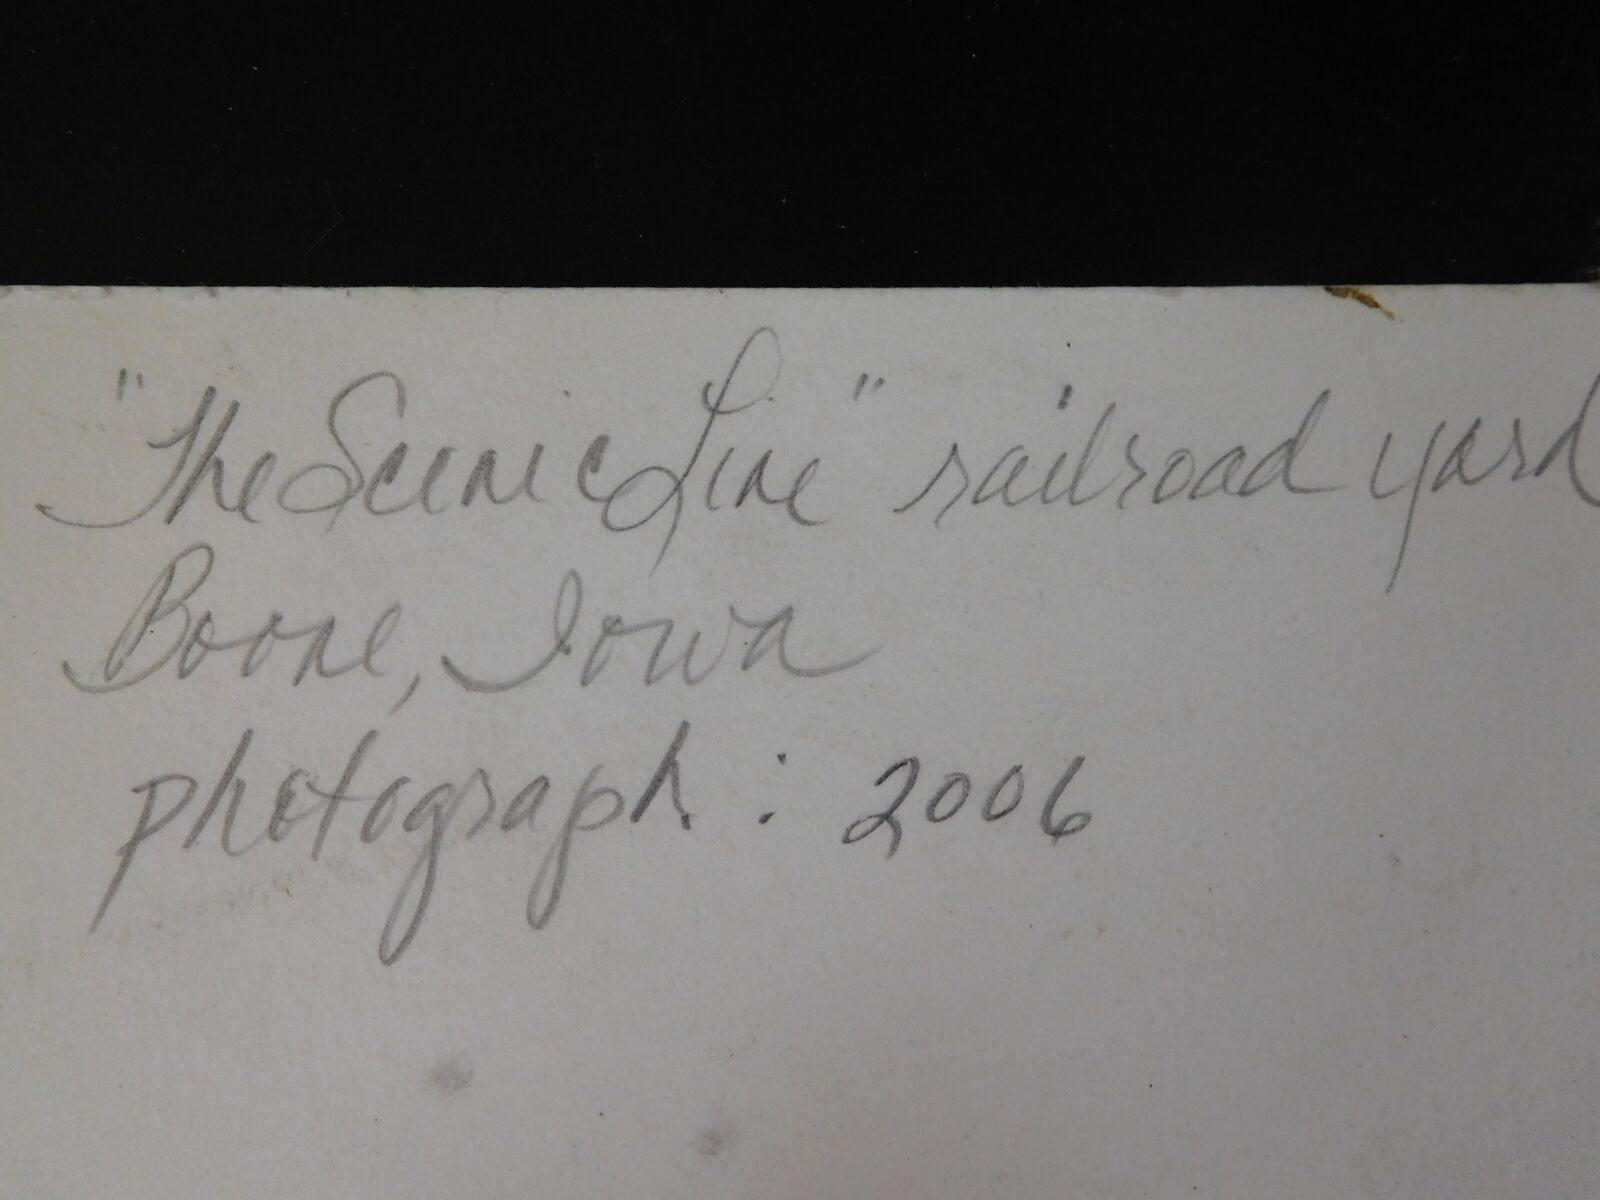 "The Scenic Line" railroad yard
Boone, Iowa
photograph : 2006